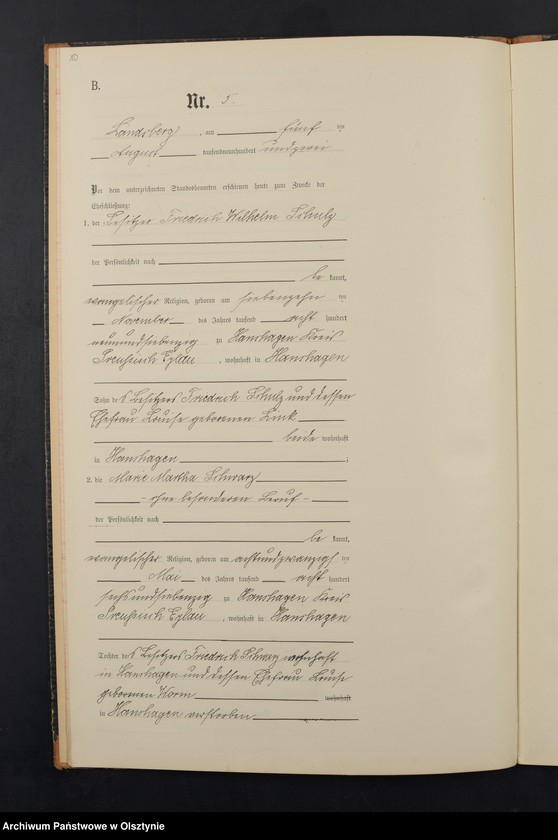 10
B.
Nr. 5.
Landsberg, am fünf ten
August tausendneunhundert undzwei
Vor dem unterzeichneten Standesbeamten erschienen heute zum Zwecke der
Eheschließung:
1. der Besitzer Friedrich Wilhelm Schulz
der Persönlichkeit nach
be kannt,
evangelischer Religion, geboren am siebenzehn ten
November des Jahres tausend acht hundert
neunundsiebenzig zu Hanshagen Kreis
Preußisch Eylau, wohnhaft in Hanshagen
Sohn des Besitzers Friedrich Schulz und dessen
Ehefrau Louise geborenen Link
beide wohnhaft
in Hanshagen;
2. die Marie Martha Schwarz
- ohne besonderen Beruf -
der Persönlichkeit nach
be kannt,
evangelischer Religion, geboren am achtundzwanzigs ten
Mai des Jahres tausend acht hundert
sechsundsiebenzig zu Hanshagen Kreis
Preußisch Eylau, wohnhaft in Hanshagen
Tochter des Besitzers Friedrich Schwarz wohnhaft
in Hanshagen und dessen Ehefrau Louise
geborenen Worm wohnhaft
in Hanshagen verstorben
Archiwum Państwowe w Olsztynie